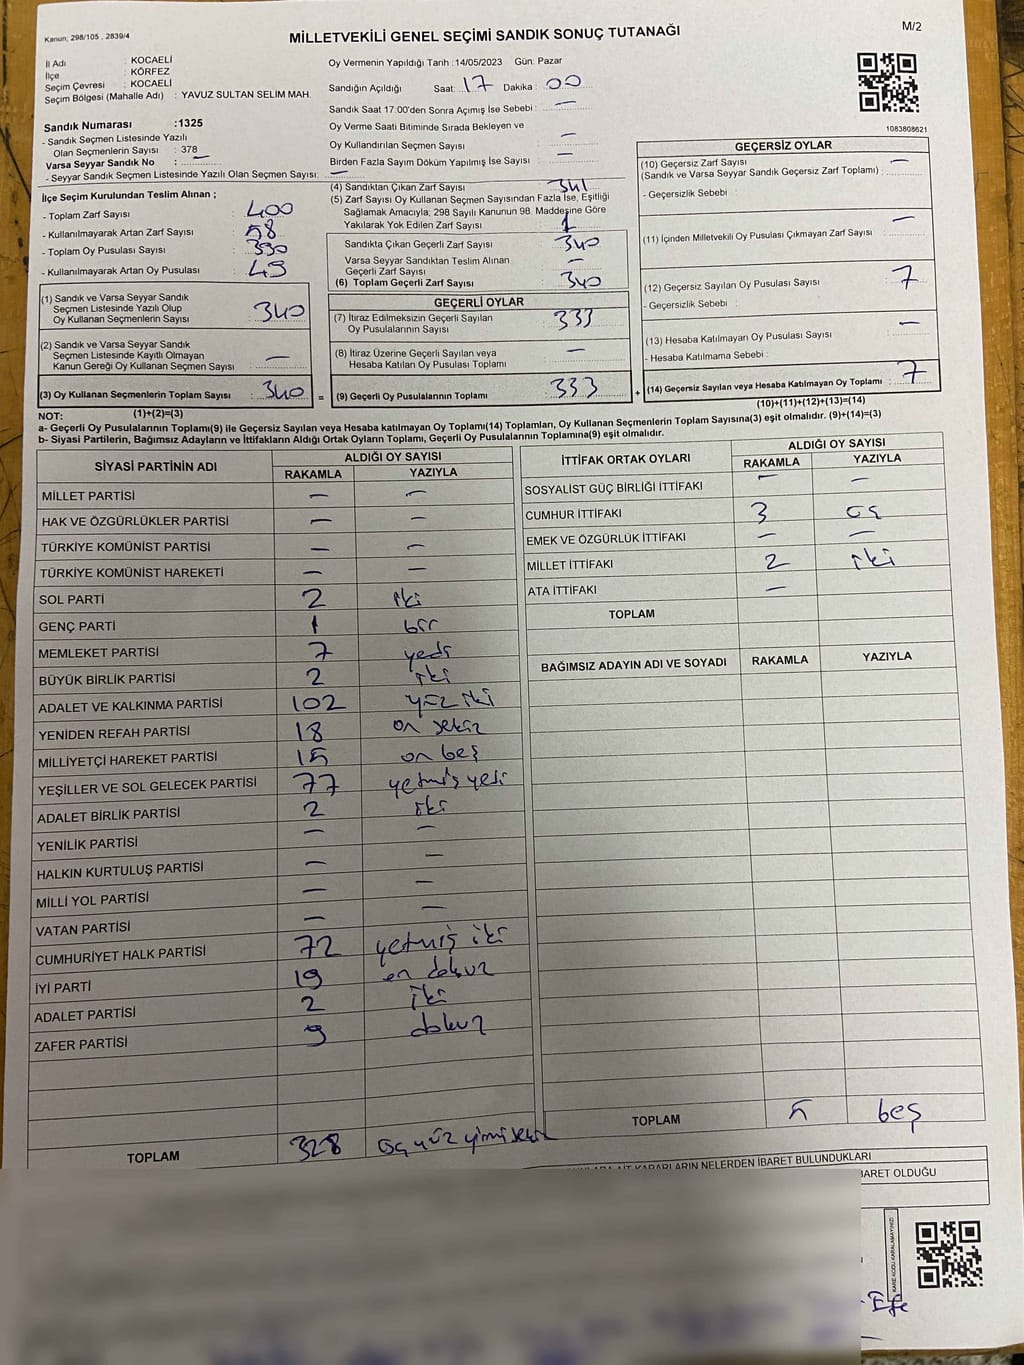 Kanun: 298/105 , 2839/4
MİLLETVEKİLİ GENEL SEÇİMİ SANDIK SONUÇ TUTANAĞI
M/2
İl Adı : KOCAELİ
İlçe : KÖRFEZ
Seçim Çevresi : KOCAELİ
Seçim Bölgesi (Mahalle Adı) : YAVUZ SULTAN SELIM MAH.
Sandık Numarası :1325
- Sandık Seçmen Listesinde Yazılı
Olan Seçmenlerin Sayısı : 378
Varsa Seyyar Sandık No : —
- Seyyar Sandık Seçmen Listesinde Yazılı Olan Seçmen Sayısı: —
Oy Vermenin Yapıldığı Tarih :14/05/2023 Gün: Pazar
Sandığın Açıldığı Saat: 17 Dakika : 00
Sandık Saat 17:00'den Sonra Açımış İse Sebebi : —
Oy Verme Saati Bitiminde Sırada Bekleyen ve
Oy Kullandırılan Seçmen Sayısı : —
Birden Fazla Sayım Döküm Yapılmış İse Sayısı : —
1083808621
İlçe Seçim Kurulundan Teslim Alınan ;
- Toplam Zarf Sayısı : 400
- Kullanılmayarak Artan Zarf Sayısı : 58
- Toplam Oy Pusulası Sayısı : 390
- Kullanılmayarak Artan Oy Pusulası : 49
(1) Sandık ve Varsa Seyyar Sandık
Seçmen Listesinde Yazılı Olup
Oy Kullanan Seçmenlerin Sayısı : 340
(2) Sandık ve Varsa Seyyar Sandık
Seçmen Listesinde Kayıtlı Olmayan
Kanun Gereği Oy Kullanan Seçmen Sayısı : —
(3) Oy Kullanan Seçmenlerin Toplam Sayısı : 340
(1)+(2)=(3)
(4) Sandıktan Çıkan Zarf Sayısı : 341
(5) Zarf Sayısı Oy Kullanan Seçmen Sayısından Fazla İse, Eşitliği
Sağlamak Amacıyla; 298 Sayılı Kanunun 98. Maddesine Göre
Yakılarak Yok Edilen Zarf Sayısı : 1
Sandıkta Çıkan Geçerli Zarf Sayısı : 340
Varsa Seyyar Sandıktan Teslim Alınan
Geçerli Zarf Sayısı : —
(6) Toplam Geçerli Zarf Sayısı : 340
GEÇERLİ OYLAR
(7) İtiraz Edilmeksizin Geçerli Sayılan
Oy Pusulalarının Sayısı : 333
(8) İtiraz Üzerine Geçerli Sayılan veya
Hesaba Katılan Oy Pusulası Toplamı : —
= (9) Geçerli Oy Pusulalarının Toplamı : 333 +
GEÇERSİZ OYLAR
(10) Geçersiz Zarf Sayısı
(Sandık ve Varsa Seyyar Sandık Geçersiz Zarf Toplamı) : —
- Geçersizlik Sebebi :
(11) İçinden Milletvekili Oy Pusulası Çıkmayan Zarf Sayısı : —
(12) Geçersiz Sayılan Oy Pusulası Sayısı : 7
- Geçersizlik Sebebi :
(13) Hesaba Katılmayan Oy Pusulası Sayısı : —
- Hesaba Katılmama Sebebi :
(14) Geçersiz Sayılan veya Hesaba Katılmayan Oy Toplamı : 7
(10)+(11)+(12)+(13)=(14)
NOT:
a- Geçerli Oy Pusulalarının Toplamı(9) ile Geçersiz Sayılan veya Hesaba katılmayan Oy Toplamı(14) Toplamları, Oy Kullanan Seçmenlerin Toplam Sayısına(3) eşit olmalıdır. (9)+(14)=(3)
b- Siyasi Partilerin, Bağımsız Adayların ve İttifakların Aldığı Ortak Oyların Toplamı, Geçerli Oy Pusulalarının Toplamına(9) eşit olmalıdır.
SİYASİ PARTİNİN ADI ALDIĞI OY SAYISI
RAKAMLA YAZIYLA
MİLLET PARTİSİ — —
HAK VE ÖZGÜRLÜKLER PARTİSİ — —
TÜRKİYE KOMÜNİST PARTİSİ — —
TÜRKİYE KOMÜNİST HAREKETİ — —
SOL PARTİ 2 iki
GENÇ PARTİ 1 bir
MEMLEKET PARTİSİ 7 yedi
BÜYÜK BİRLİK PARTİSİ 2 iki
ADALET VE KALKINMA PARTİSİ 102 yüz iki
YENİDEN REFAH PARTİSİ 18 on sekiz
MİLLİYETÇİ HAREKET PARTİSİ 15 on beş
YEŞİLLER VE SOL GELECEK PARTİSİ 77 yetmiş yedi
ADALET BİRLİK PARTİSİ 2 iki
YENİLİK PARTİSİ — —
HALKIN KURTULUŞ PARTİSİ — —
MİLLİ YOL PARTİSİ — —
VATAN PARTİSİ — —
CUMHURİYET HALK PARTİSİ 72 yetmiş iki
İYİ PARTİ 19 on dokuz
ADALET PARTİSİ 2 iki
ZAFER PARTİSİ 9 dokuz
TOPLAM 328 üç yüz yirmi sekiz
İTTİFAK ORTAK OYLARI ALDIĞI OY SAYISI
RAKAMLA YAZIYLA
SOSYALİST GÜÇ BİRLİĞİ İTTİFAKI — —
CUMHUR İTTİFAKI 3 üç
EMEK VE ÖZGÜRLÜK İTTİFAKI — —
MİLLET İTTİFAKI 2 iki
ATA İTTİFAKI —
TOPLAM
BAĞIMSIZ ADAYIN ADI VE SOYADI RAKAMLA YAZIYLA
TOPLAM 5 beş
KARARLARIN NELERDEN İBARET BULUNDUKLARI
İBARET OLDUĞU
KARE KODU KARALAMAYINIZ!
Efe